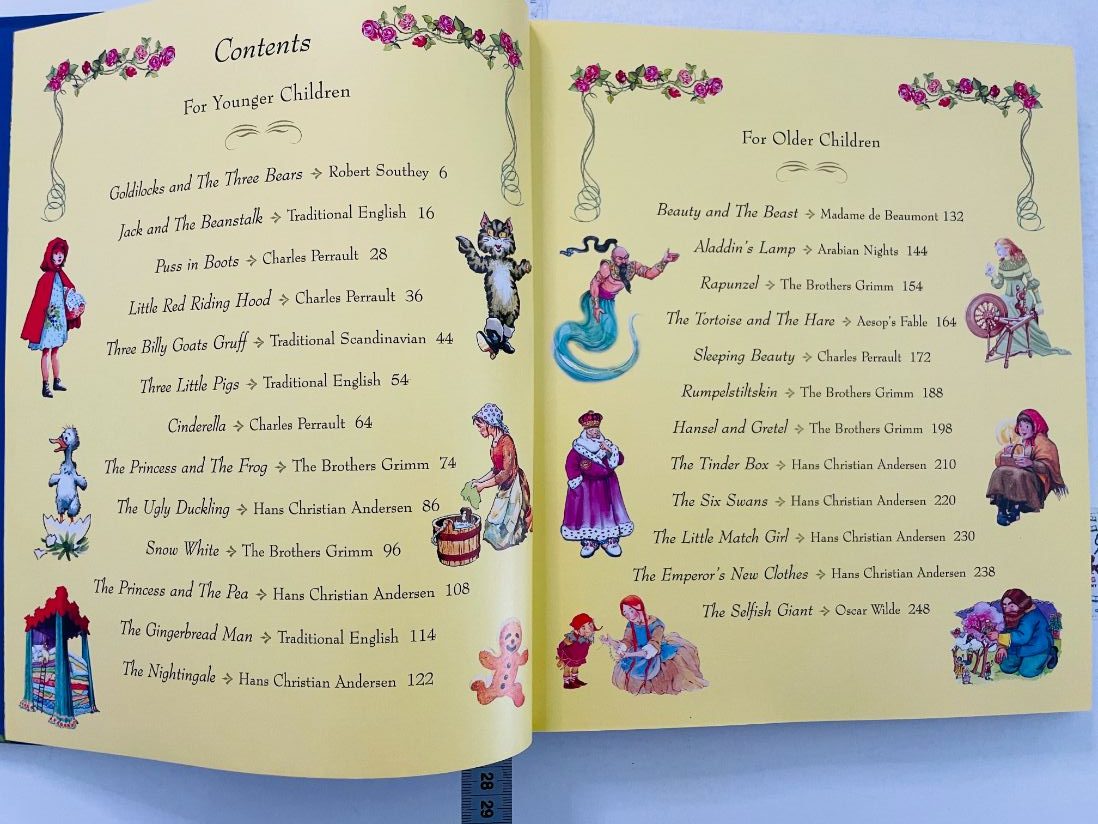 Contents
For Younger Children
Goldilocks and The Three Bears → Robert Southey 6
Jack and The Beanstalk → Traditional English 16
Puss in Boots → Charles Perrault 28
Little Red Riding Hood → Charles Perrault 36
Three Billy Goats Gruff → Traditional Scandinavian 44
Three Little Pigs → Traditional English 54
Cinderella → Charles Perrault 64
The Princess and The Frog → The Brothers Grimm 74
The Ugly Duckling → Hans Christian Andersen 86
Snow White → The Brothers Grimm 96
The Princess and The Pea → Hans Christian Andersen 108
The Gingerbread Man → Traditional English 114
The Nightingale → Hans Christian Andersen 122
For Older Children
Beauty and The Beast → Madame de Beaumont 132
Aladdin's Lamp → Arabian Nights 144
Rapunzel → The Brothers Grimm 154
The Tortoise and The Hare → Aesop's Fable 164
Sleeping Beauty → Charles Perrault 172
Rumpelstiltskin → The Brothers Grimm 188
Hansel and Gretel → The Brothers Grimm 198
The Tinder Box → Hans Christian Andersen 210
The Six Swans → Hans Christian Andersen 220
The Little Match Girl → Hans Christian Andersen 230
The Emperor's New Clothes → Hans Christian Andersen 238
The Selfish Giant → Oscar Wilde 248
28
29